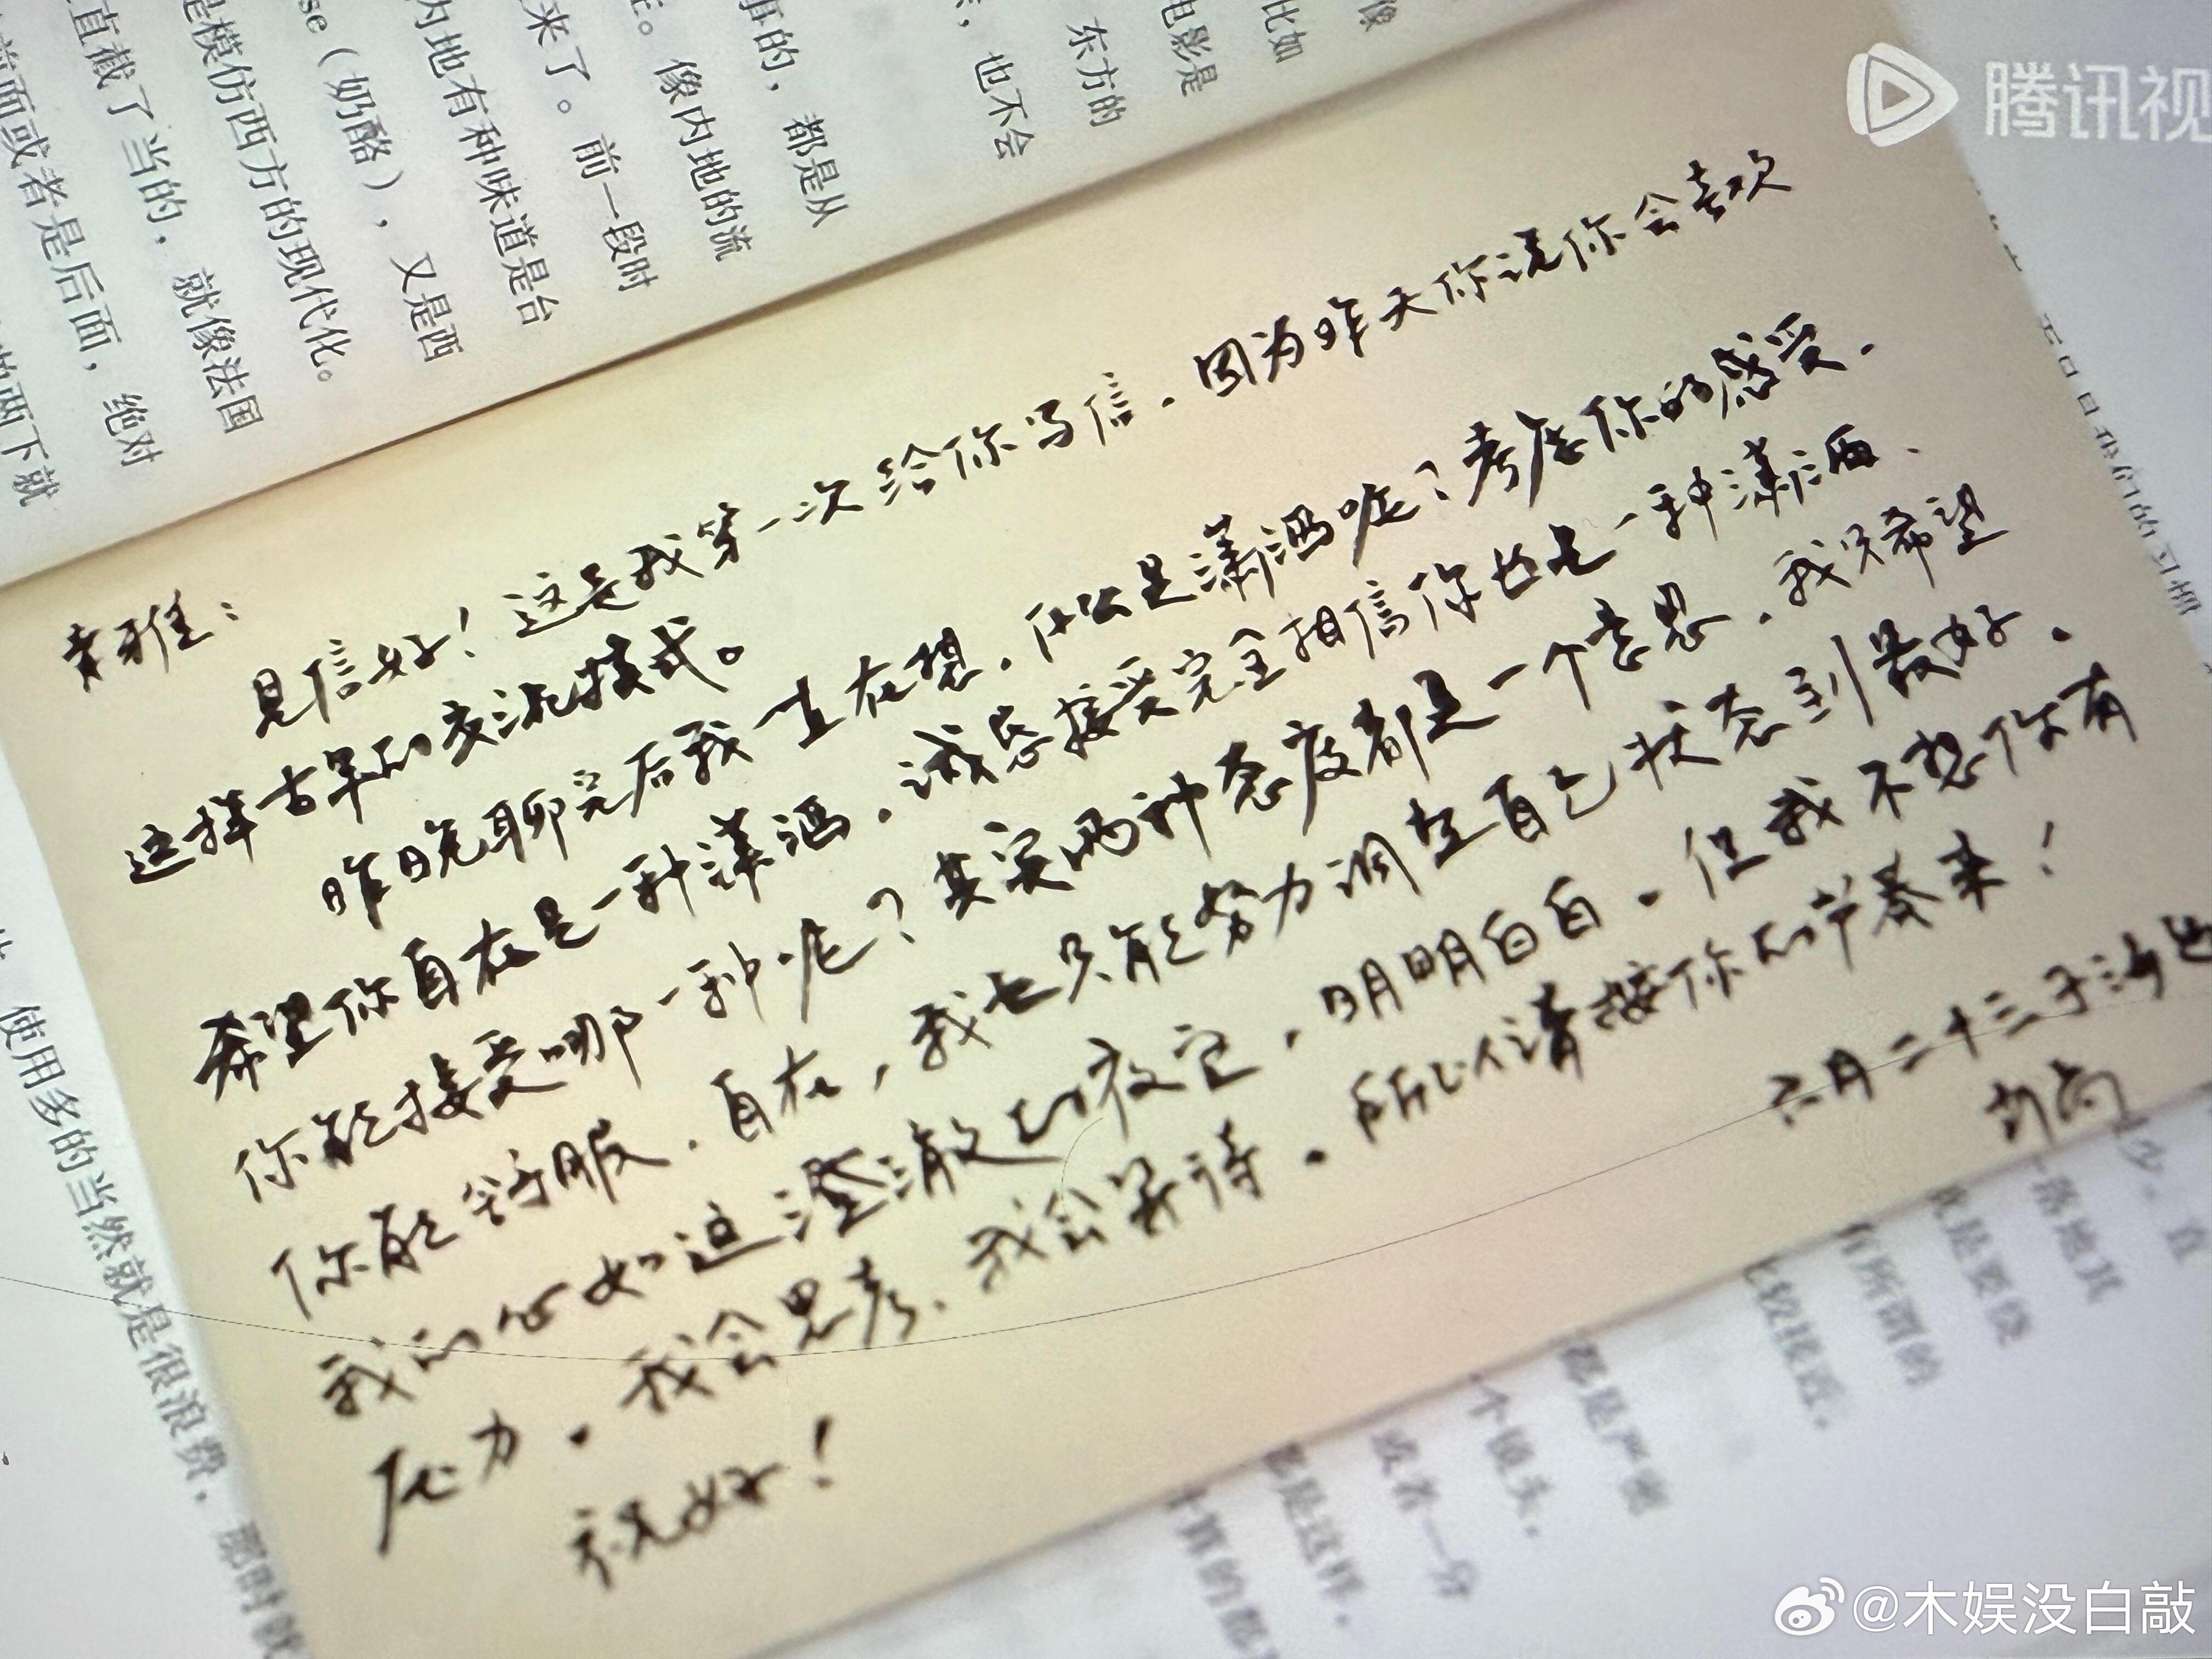 腾讯视
幸雅：
见信好！这是我第一次给你写信.因为昨天你说你会喜欢
这样古早的交流模式。
昨晚聊完后我一直在想.什么是潇洒呢？考虑你的感受.
希望你自在是一种潇洒.诚恳接受完全相信你也是一种潇洒.
你能接受哪一种呢？其实两种态度都是一个意思.我只希望
你能舒服.自在,我也只能努力调整自己状态到最好.
我的心如这澄澈的夜空,明明白白.但我不想你有
压力.我会思考.我会等待.所以请按你的节奏来！
祝好！
六月二十三于海
se（奶酪），又是西
是模仿西方的现代化。
直截了当的，就像法国
前面或者是后面，绝对
两下就
为内地有种味道是台
来了。前一段时
像内地的流
事的，都是从
也不会
东方的
电影是
比如
像
使用多的当然就是很浪费，那时候
一落地其
就是要绕
有所谓的
比较接近，
都是严密
个镜头，
或者一分
都是这样，
计算的都
@木娱没白敲